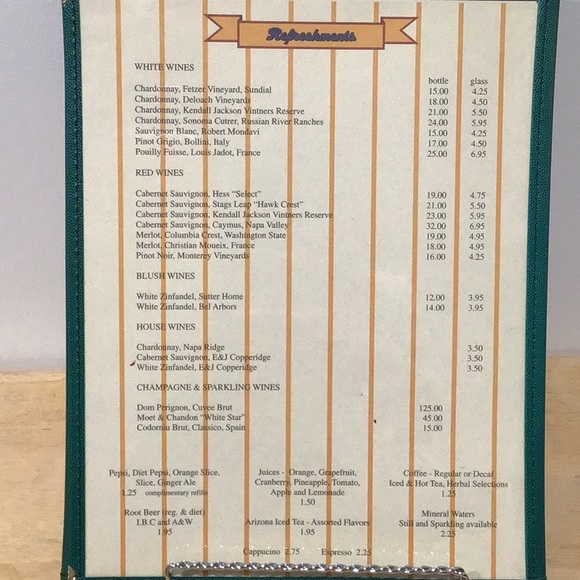 Refreshments
WHITE WINES
bottle glass
Chardonnay, Fetzer Vineyard, Sundial 15.00 4.25
Chardonnay, Deloach Vineyards 18.00 4.50
Chardonnay, Kendall Jackson Vintners Reserve 21.00 5.50
Chardonnay, Sonoma Cutrer, Russian River Ranches 24.00 5.95
Sauvignon Blanc, Robert Mondavi 15.00 4.25
Pinot Grigio, Bollini, Italy 17.00 4.50
Pouilly Fuisse, Louis Jadot, France 25.00 6.95
RED WINES
Cabernet Sauvignon, Hess "Select" 19.00 4.75
Cabernet Sauvignon, Stags Leap "Hawk Crest" 21.00 5.50
Cabernet Sauvignon, Kendall Jackson Vintners Reserve 23.00 5.95
Cabernet Sauvignon, Caymus, Napa Valley 32.00 6.95
Merlot, Columbia Crest, Washington State 19.00 4.95
Merlot, Christian Moueix, France 18.00 4.95
Pinot Noir, Monterey Vineyards 16.00 4.25
BLUSH WINES
White Zinfandel, Sutter Home 12.00 3.95
White Zinfandel, Bel Arbors 14.00 3.95
HOUSE WINES
Chardonnay, Napa Ridge 3.50
Cabernet Sauvignon, E&J Copperidge 3.50
White Zinfandel, E&J Copperidge 3.50
CHAMPAGNE & SPARKLING WINES
Dom Perignon, Cuvee Brut 125.00
Moet & Chandon "White Star" 45.00
Codorniu Brut, Classico, Spain 15.00
Pepsi, Diet Pepsi, Orange Slice,
Slice, Ginger Ale
1.25 complimentary refills
Juices - Orange, Grapefruit,
Cranberry, Pineapple, Tomato,
Apple and Lemonade
1.50
Coffee - Regular or Decaf
Iced & Hot Tea, Herbal Selections
1.25
Root Beer (reg. & diet)
I.B.C and A&W
1.95
Arizona Iced Tea - Assorted Flavors
1.95
Mineral Waters
Still and Sparkling available
2.25
Cappucino 2.75 Espresso 2.25